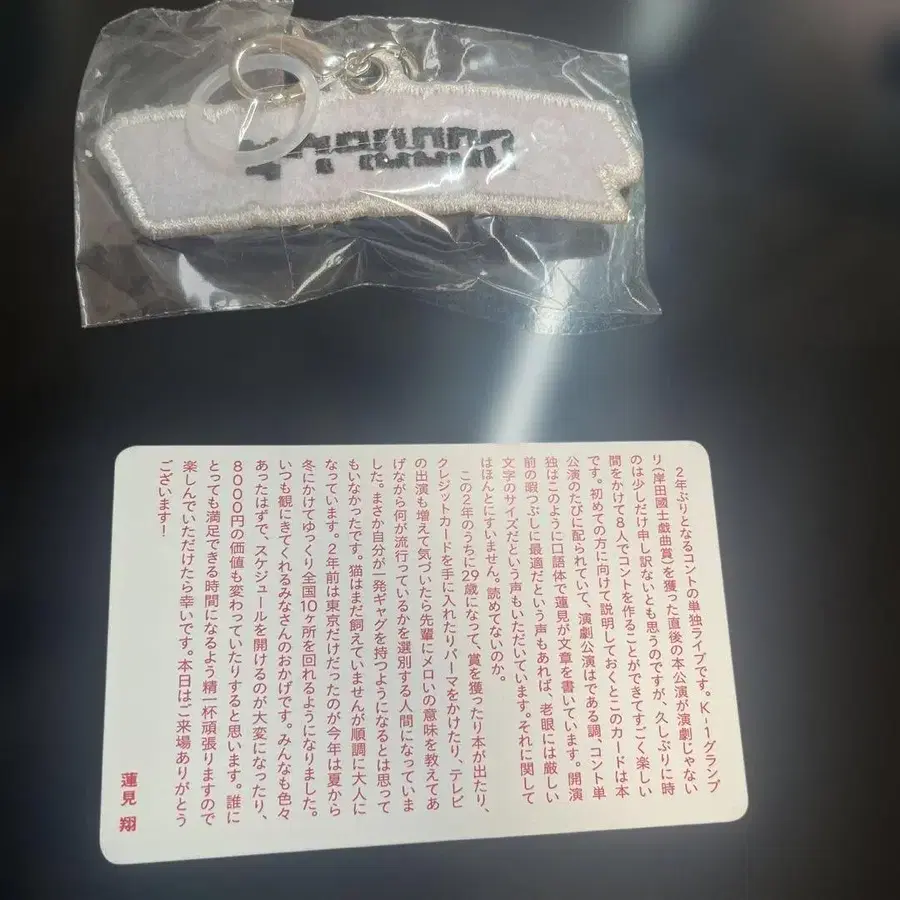 ２年ぶりとなるコントの単独ライブです。K-1グランプ
リ(岸田國士戯曲賞)を獲った直後の本公演が演劇じゃない
のは少しだけ申し訳ないとも思うのですが、久しぶりに時
間をかけて8人でコントを作ることができてすごく楽しい
です。初めての方に向けて説明しておくとこのカードは本
公演のたびに配られていて、演劇公演はである調、コント単
独はこのように口語体で蓮見が文章を書いています。開演
前の暇つぶしに最適だという声もあれば、老眼には厳しい
文字のサイズだという声もいただいています。それに関して
はほんとにすいません。読めてないのか。
　この2年のうちに29歳になって、賞を獲ったり本が出たり、
クレジットカードを手に入れたりパーマをかけたり、テレビ
の出演も増えて気づいたら先輩にメロいの意味を教えてあ
げながら何が流行っているかを選別する人間になっていま
した。まさか自分が一発ギャグを持つようになるとは思って
もいなかったです。猫はまだ飼えていませんが順調に大人に
なっています。2年前は東京だけだったのが今年は夏から
冬にかけてゆっくり全国10ヶ所を回れるようになりました。
いつも観にきてくれるみなさんのおかげです。みんなも色々
あったはずで、スケジュールを開けるのが大変になったり、
8000円の価値も変わっていたりすると思います。誰に
とっても満足できる時間になるよう精一杯頑張りますので
楽しんでいただけたら幸いです。本日はご来場ありがとう
ございます！
蓮見 翔